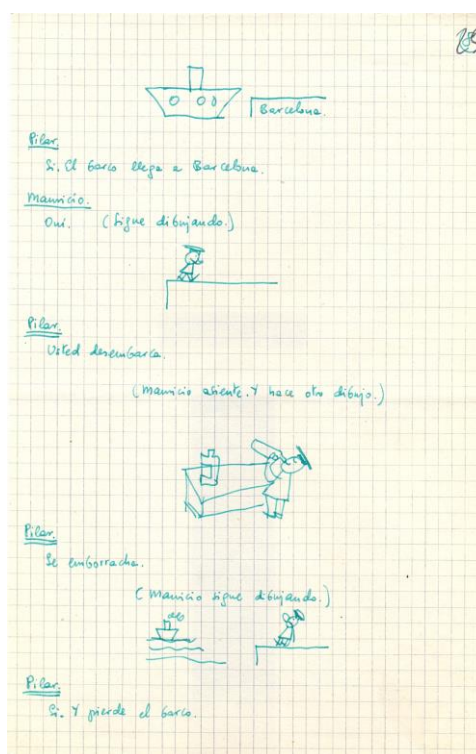 Barcelona.
Pilar.
Si. El barco llega a Barcelona.
Mauricio.
Oui. (Sigue dibujando.)
Pilar.
Usted desembarca.
(Mauricio asiente. Y hace otro dibujo.)
Pilar.
Se emborracha.
(Mauricio sigue dibujando.)
Pilar.
Si. Y pierde el barco.